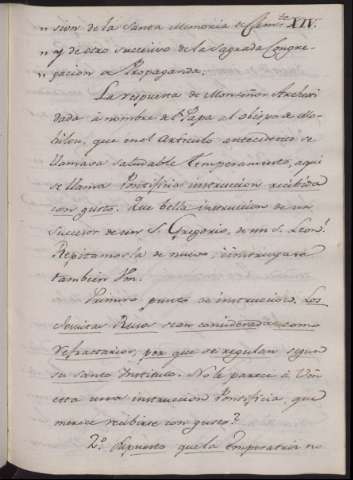 „ sion de la Santa Memoria de Clem.te XIV.
„ y de otro succesivo de la Sagrada Congre-
„ gacion de Propaganda.
La respuesta de Monseñor Archeti
dada à nombre del Papa al obispo de Mo-
hilou, que en el Articulo antecedente se
llamava saludable temperamento, aqui
se llama Pontificia instruccion recibida
con gusto. Que bella instruccion de un
succesor de un S. Gregorio, de un S. Leon!
Repitamosla de nuevo, è instruyase
tambien Vm.
Primero punto de instruccion. Los
Jesuitas Rusos sean considerados como
refractarios, por que se regulan segun
su santo Instituto. No le parece à Vm
esta una instruccion Pontificia, que
merece recibirse con gusto?
2.º Supuesto que la Emperatriz no